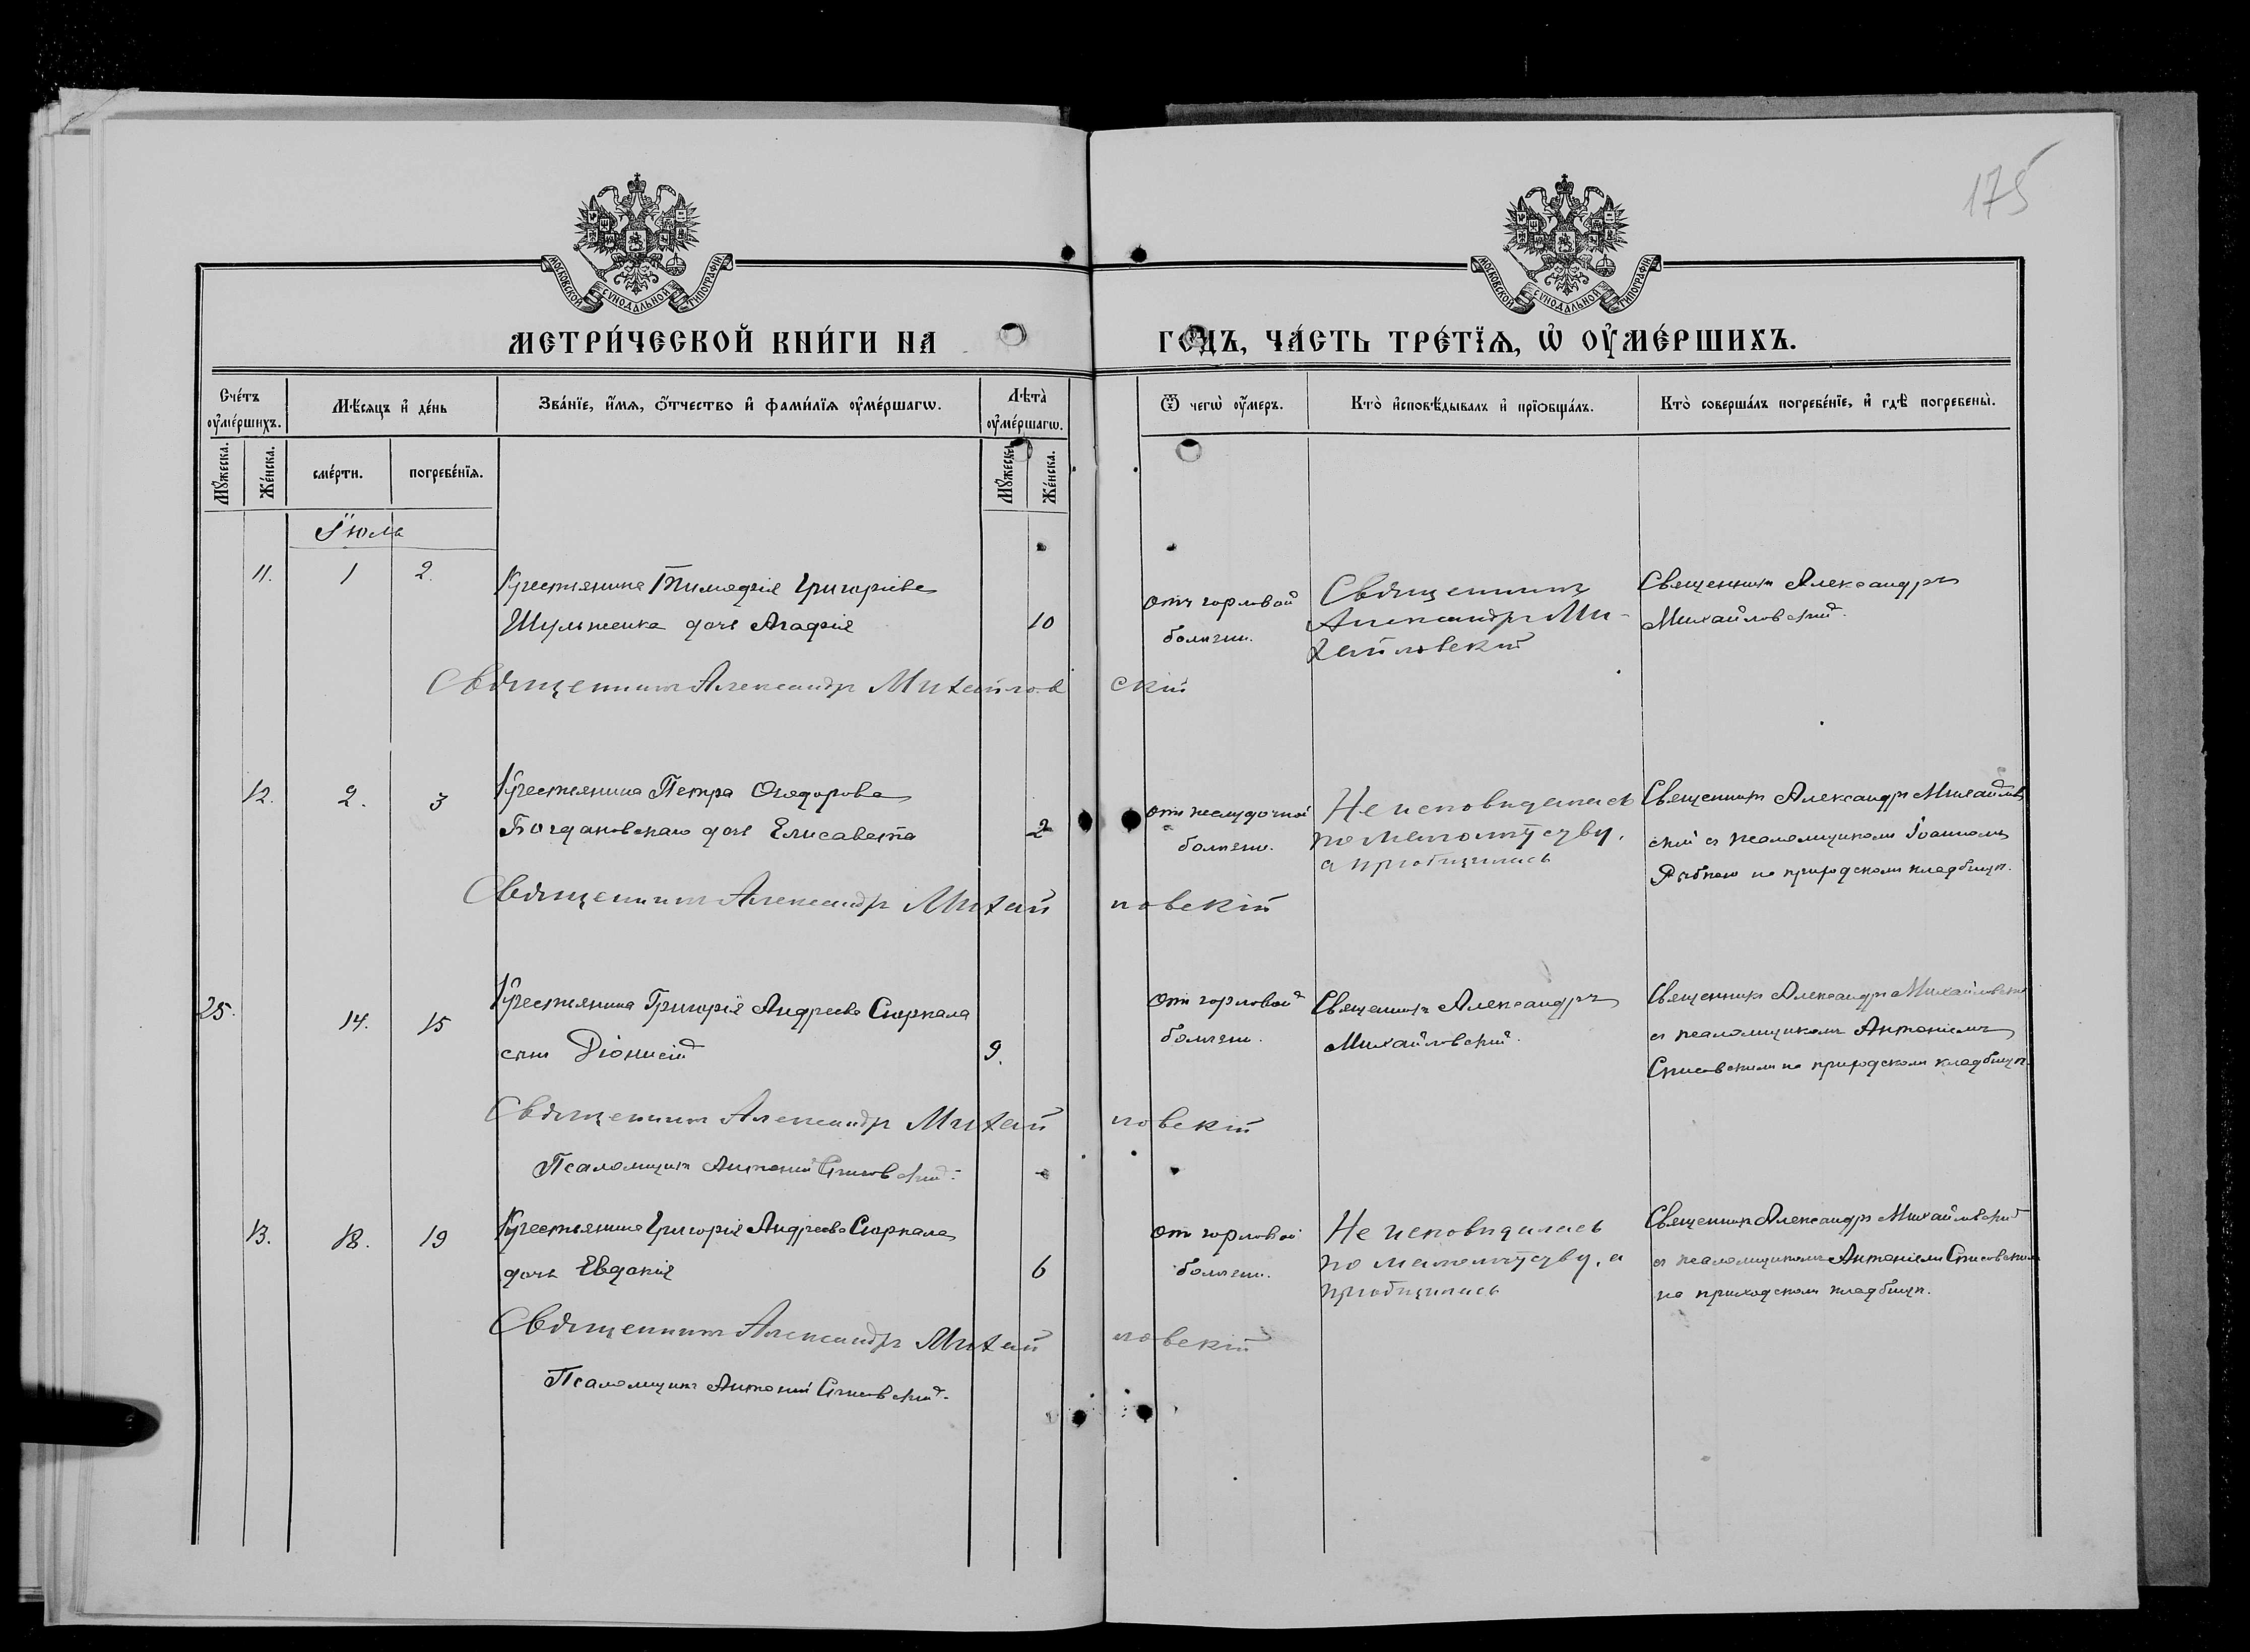 175
МОСКОВСКОЙ СѴНОДАЛЬНОЙ ТИПОГРАФІИ
МОСКОВСКОЙ СѴНОДАЛЬНОЙ ТИПОГРАФІИ
МЕТРИ́ЧЕСКОЙ КНИ́ГИ НА ГО́ДЪ, ЧА́СТЬ ТРЕ́ТЇѦ, Ѡ҆ ОУ҆МЕ́РШИХЪ.
Сче́тъ оу҆ме́ршихъ.
Мѣ́сяцъ и҆ де́нь
Зва́нїе, и҆́мѧ, ѻ҆́тчество и҆ фами́лїѧ оу҆ме́ршагѡ.
Лѣта̀ оу҆ме́ршагѡ.
Ѿ чегѡ̀ оу҆́меръ.
Кто̀ и҆сповѣ́дывалъ и҆ прїѻбща́лъ.
Кто̀ соверша́лъ погребе́нїе, и҆ гдѣ̀ погребены̀.
Мꙋ́жеска. Же́нска. сме́рти. погребе́нїѧ. Мꙋ́жеска. Же́нска.
Іюль
11. 1 2. Крестьянина Тимоѳія Григоріева
Шульженка дочь Агафія 10
отъ горловой
болѣзни.
Священникъ
Александръ Ми-
хайловскій
Священникъ Александръ
Михайловскій.
Священникъ Александръ Михайловскій
12. 2. 3 Крестьянина Петра Ѳеодорова
Богдановскаго дочь Елисавета 2
отъ желудочной
болѣзни.
Не исповѣдалась
по малолѣтству,
а пріобщилась
Священникъ Александръ Михайлов
скій съ псаломщикомъ Іоанномъ
на приходскомъ кладбищѣ.
Священникъ Александръ Михайловскій
25. 14. 15 Крестьянина Григорія Андреева Сюркала
сынъ Діонисій 9.
отъ горловой
болѣзни.
Священникъ Александръ
Михайловскій.
Священникъ Александръ Михайловскій
съ псаломщикомъ Антоніемъ
на приходскомъ кладбищѣ.
Священникъ Александръ Михайловскій
Псаломщикъ Антоній
13. 18. 19 Крестьянина Григорія Андреева Сюркала
дочь Евдокія 6
отъ горловой
болѣзни.
Не исповѣдалась
по малолѣтству, а
пріобщилась
Священникъ Александръ Михайловскій
съ псаломщикомъ Антоніемъ
на приходскомъ кладбищѣ.
Священникъ Александръ Михайловскій
Псаломщикъ Антоній